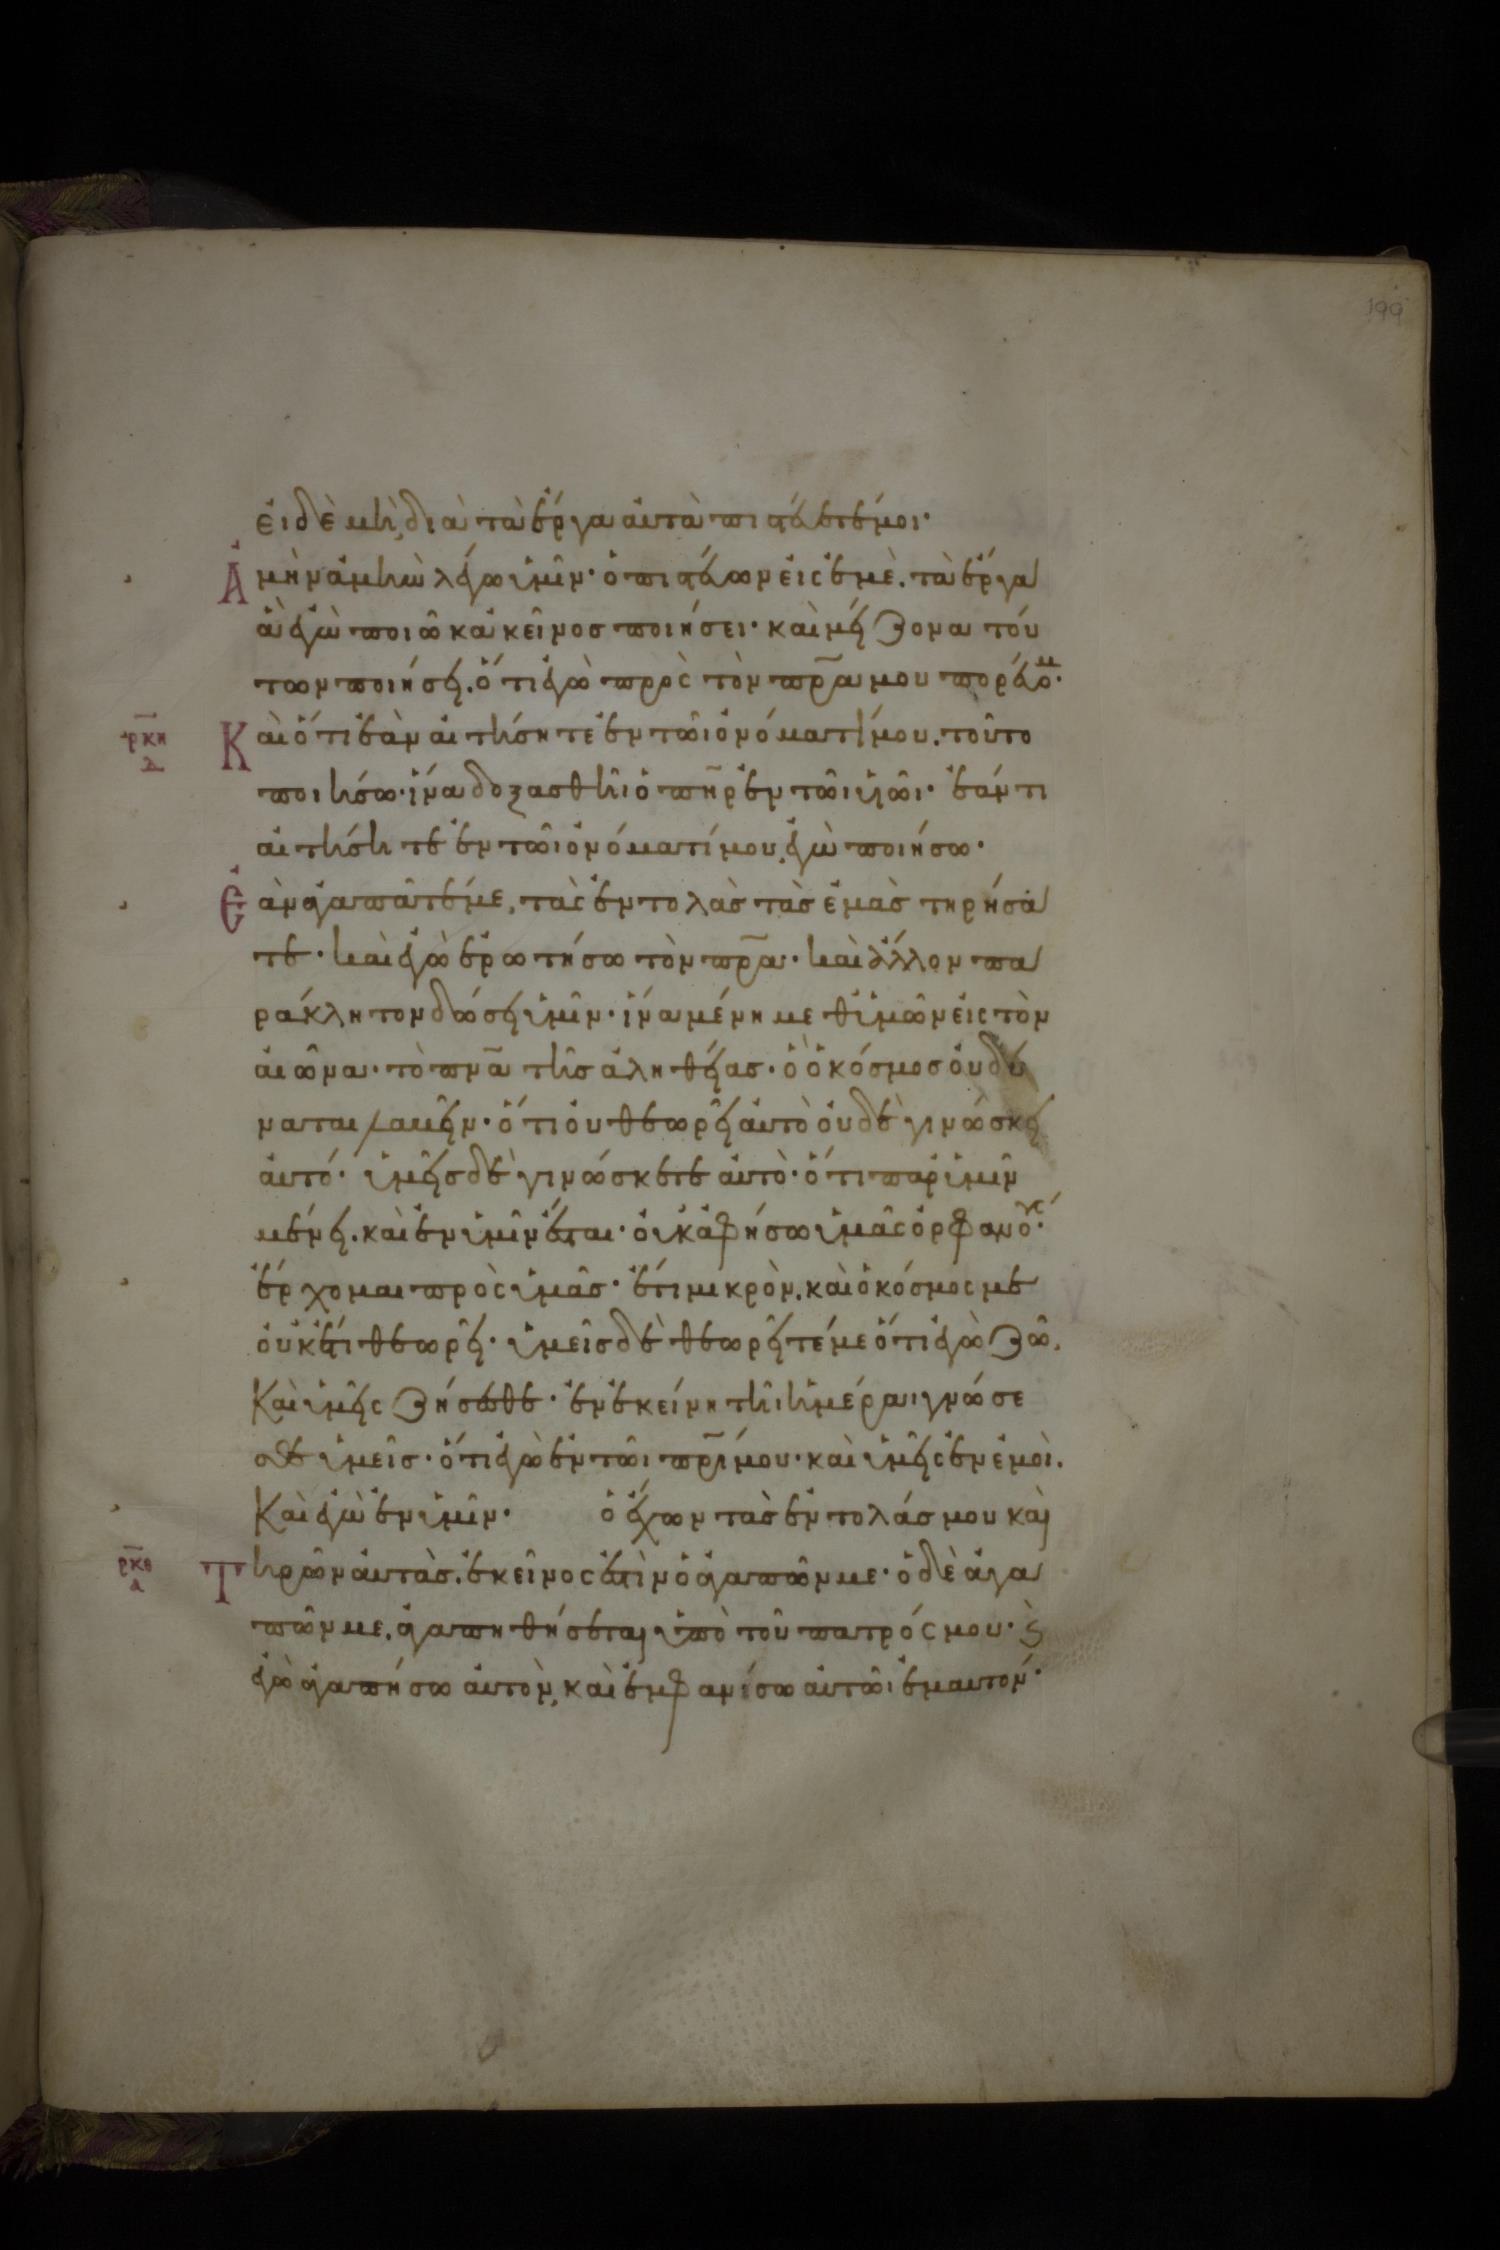 199
εἰ δὲ μὴ, διὰ τὰ ἔργα αὐτὰ πιστεύετέ μοι·
Ἀμὴν ἀμὴν λέγω ὑμῖν· ὁ πιστεύων εἰς ἐμὲ, τὰ ἔργα
ἃ ἐγὼ ποιῶ κἀκεῖνος ποιήσει· καὶ μείζονα τού
των ποιήσει, ὅτι ἐγὼ πρὸς τὸν πρ̅α μου πορεύομ·
ρκη δ Καὶ ὅτι ἐὰν αἰτήσητε ἐν τῶι ὀνόματί μου, τοῦτο
ποιήσω· ἵνα δοξασθῆι ὁ πη̅ρ ἐν τῶι υἱῶι· ἐάν τι
αἰτήσητε ἐν τῶι ὀνόματί μου, ἐγὼ ποιήσω·
Ἐὰν ἀγαπᾶτέ με, τὰς ἐντολὰς τὰς ἐμὰς τηρήσα
τε· καὶ ἐγὼ ἐρωτήσω τὸν πρ̅α· καὶ ἄλλον πα
ράκλητον δώσει ὑμῖν· ἵνα μένη μεθ ὑμῶν εἰς τὸν
αἰῶνα· τὸ πν̅α τῆς ἀληθείας· ὃ ὁ κόσμος οὐ δύ
ναται λαβεῖν· ὅτι οὐ θεωρεῖ αὐτὸ οὐδὲ γινώσκει
αὐτό· ὑμεῖς δὲ γινώσκετε αὐτὸ· ὅτι παρ ὑμῖν
μένει, καὶ ἐν ὑμῖν ἔσται· οὐκ ἀφήσω ὑμᾶς ὀρφανούς·
ἔρχομαι πρὸς ὑμᾶς· ἔτι μικρὸν, καὶ ὁ κόσμος με
οὐκέτι θεωρεῖ· ὑμεῖς δὲ θεωρεῖτέ με ὅτι ἐγὼ ζῶ,
Καὶ ὑμεῖς ζήσεσθε· ἐν ἐκείνη τῆι ἡμέραι γνώσε
σθε ὑμεῖς· ὅτι ἐγὼ ἐν τῶι πρ̅ι μου· καὶ ὑμεῖς ἐν ἐμοὶ.
Καὶ ἐγὼ ἐν ὑμῖν· ὁ ἔχων τὰς ἐντολάς μου καὶ
ρκθ α Τηρῶν αὐτὰς, ἐκεῖνος ἐστὶν ὁ ἀγαπῶν με· ὁ δὲ ἀγα
πῶν με, ἀγαπηθήσεται ὑπὸ τοῦ πατρός μου· ϗ
ἐγὼ ἀγαπήσω αὐτὸν, καὶ ἐμφανίσω αὐτῶι ἐμαυτόν·